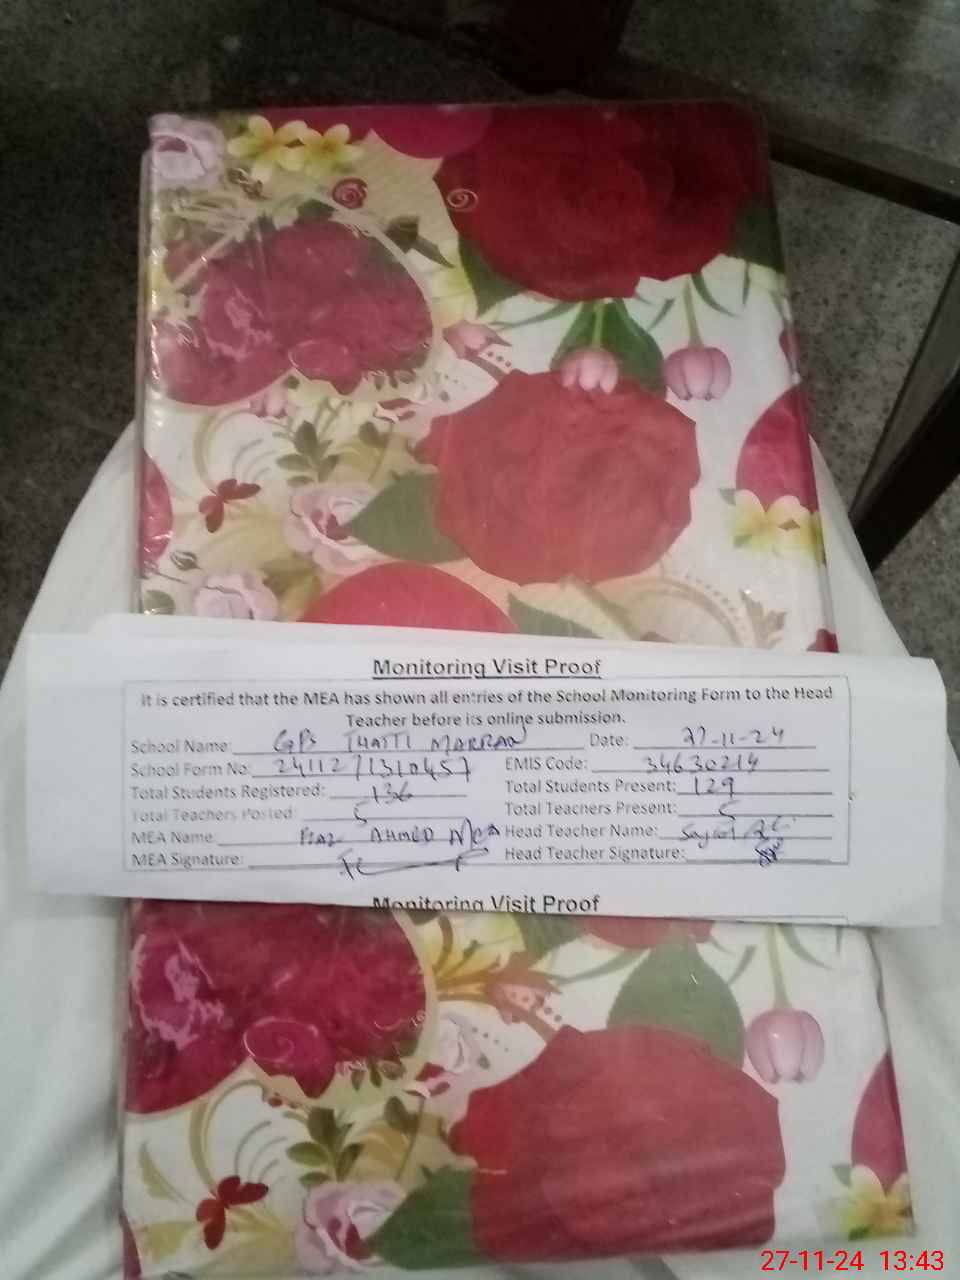 Monitoring Visit Proof
It is certified that the MEA has shown all entries of the School Monitoring Form to the Head
Teacher before its online submission.
School Name: GPS THATTI MARRAN Date: 27-11-24
School Form No: 2411271310457 EMIS Code: 34630214
Total Students Registered: 136 Total Students Present: 129
Total Teachers Posted: 5 Total Teachers Present: 5
MEA Name: AHMED MEA Head Teacher Name: Sajid Ali
MEA Signature: Head Teacher Signature:
Monitoring Visit Proof
27-11-24 13:43